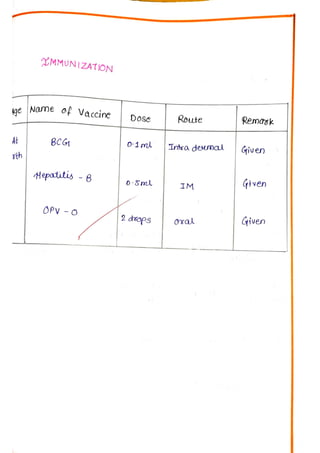 IMMUNIZATION
Age Name of Vaccine Dose Route Remark
At BCG 0.1 ml Intra dermal Given
rth
Hepatitis - B 0.5ml IM Given
OPV - O 2 drops oral Given